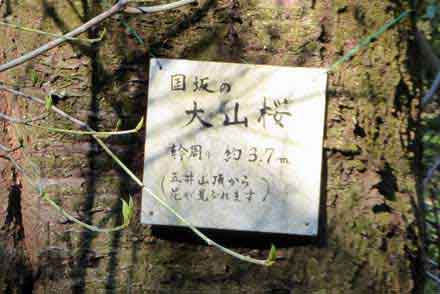 国坂の
大山桜
幹周り 約3.7m
(五井山頂から
花が見られます)